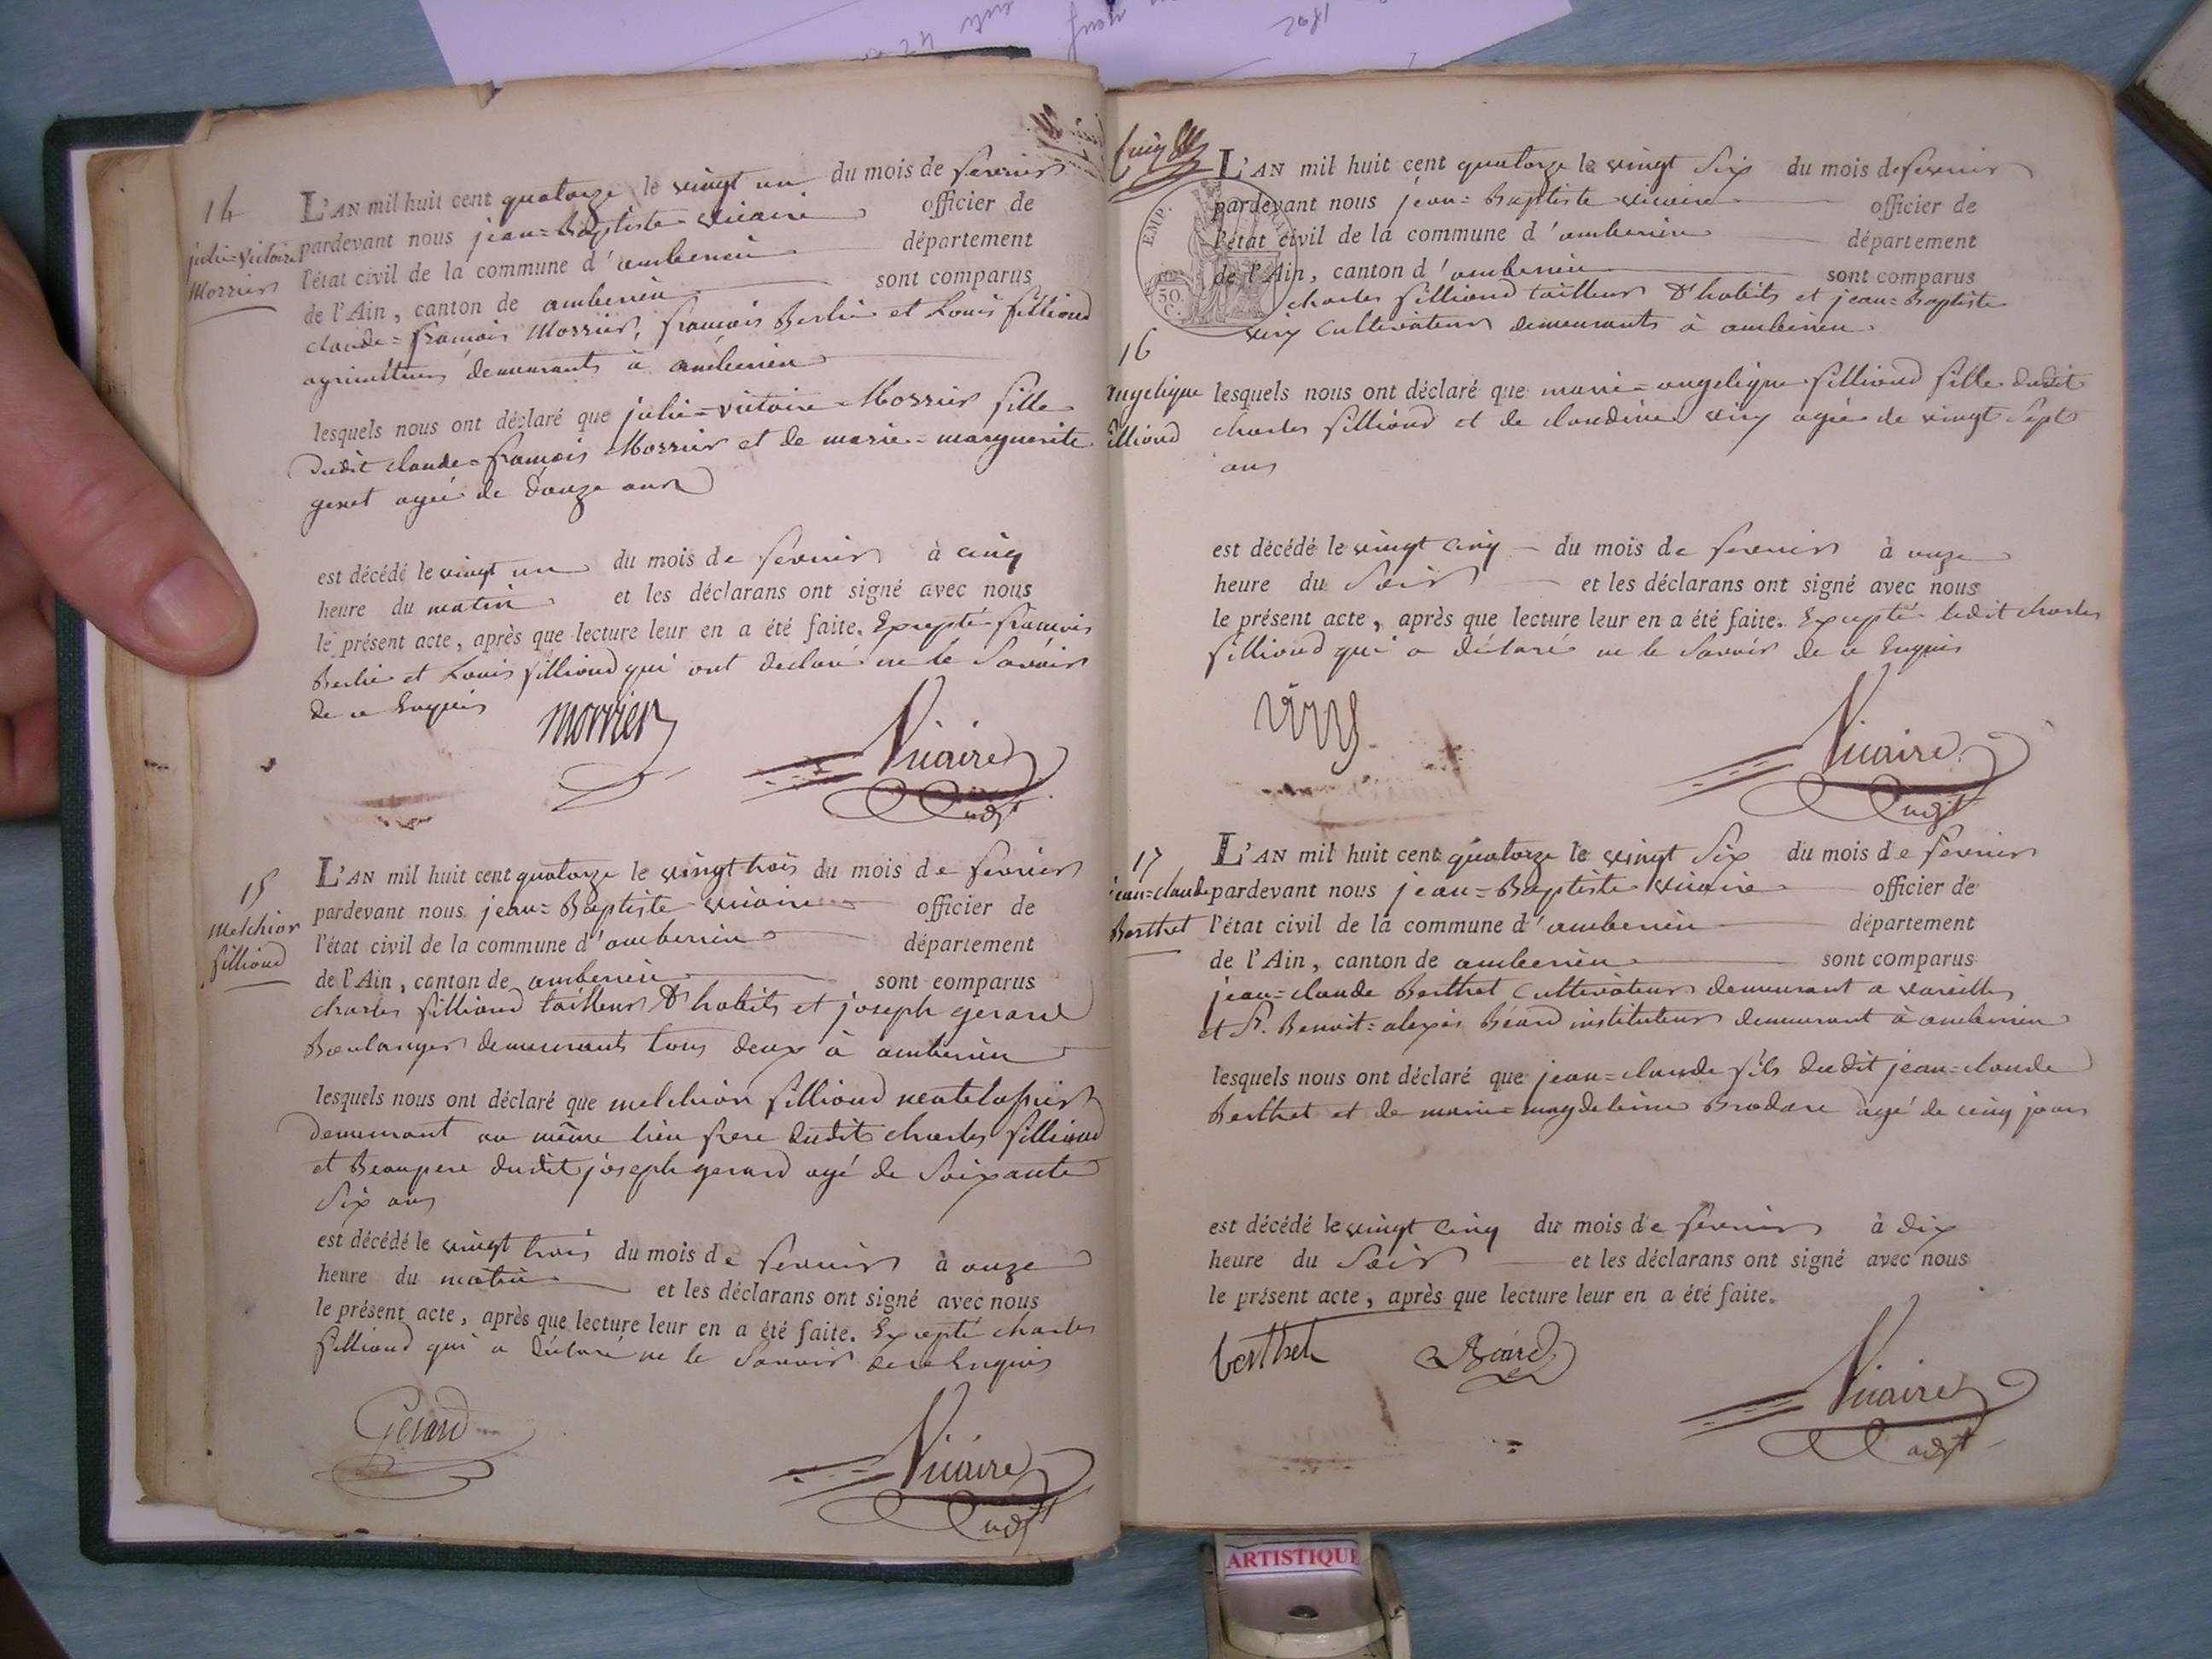 14
julie=victoire
Morrier
L'AN mil huit cent quatorze le vingt un du mois de fevrier
pardevant nous jean=Baptiste vicaire officier de
l'état civil de la commune d'amberieu département
de l'Ain, canton de amberieu sont comparus
claude=françois Morrier, françois Berlie et Louis fillioud
agriculteurs demeurants à amberieu
lesquels nous ont déclaré que julie=victoire Morrier fille
dudit claude=françois Morrier et de marie=marguerite
genet agée de douze ans
est décédé le vingt un du mois de fevrier à cinq
heure du matin et les déclarans ont signé avec nous
le présent acte, après que lecture leur en a été faite. Excepté françois
Berlie et Louis fillioud qui ont declaré ne le savoir
de ce Enquis
morrier
Vicaire
adjt
15
Melchior
fillioud
L'AN mil huit cent quatorze le vingt trois du mois de fevrier
pardevant nous jean=Baptiste vicaire officier de
l'état civil de la commune d'amberieu département
de l'Ain, canton de amberieu sont comparus
charles fillioud tailleur d'habits et joseph gerard
Boulanger demeurants tous deux à amberieu
lesquels nous ont déclaré que melchior fillioud
demeurant au même lieu frere dudit charles fillioud
et Beaupere dudit joseph gerard agé de soixante
six ans
est décédé le vingt trois du mois de fevrier à onze
heure du matin et les déclarans ont signé avec nous
le présent acte, après que lecture leur en a été faite. Excepté charles
fillioud qui a déclaré ne le savoir de ce Enquis
Gerard
Vicaire
adjt
EMP.
50.
C.
L'AN mil huit cent quatorze le vingt six du mois de fevrier
pardevant nous jean=Baptiste vicaire officier de
l'état civil de la commune d'amberieu département
de l'Ain, canton d'amberieu sont comparus
charles fillioud tailleur d'habits et jean=Baptiste
viry cultivateur demeurants à amberieu
16
angelique
fillioud
lesquels nous ont déclaré que marie=angelique fillioud fille dudit
charles fillioud et de claudine viry agée de vingt sept
ans
est décédé le vingt cinq du mois de fevrier à onze
heure du soir et les déclarans ont signé avec nous
le présent acte, après que lecture leur en a été faite. Excepté ledit charles
fillioud qui a déclaré ne le savoir de ce Enquis
viry
Vicaire
adjt
17
jean=claude
Berthet
L'AN mil huit cent quatorze le vingt six du mois de fevrier
pardevant nous jean=Baptiste vicaire officier de
l'état civil de la commune d'amberieu département
de l'Ain, canton de amberieu sont comparus
jean=claude Berthet cultivateur demeurant a vareilles
et Sr. Benoit=alexis Béard instituteur demeurant à amberieu
lesquels nous ont déclaré que jean=claude fils dudit jean=claude
Berthet et de marie=magdeleine agé de cinq jours
est décédé le vingt cinq du mois de fevrier à dix
heure du soir et les déclarans ont signé avec nous
le présent acte, après que lecture leur en a été faite.
berthet
Béard
Vicaire
adjt
ARTISTIQUE